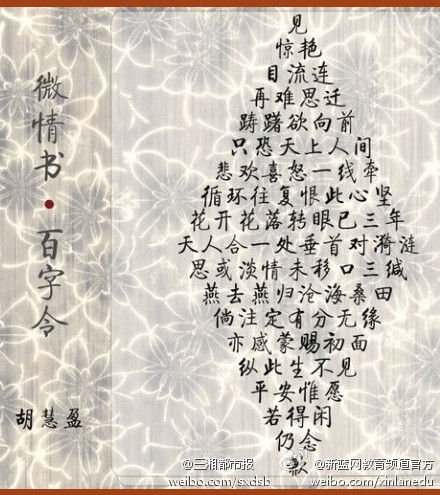 微情书·百字令
胡慧盈
见
惊艳
目流连
再难思迁
踌躇欲向前
只恐天上人间
悲欢喜怒一线牵
循环往复恨此心坚
花开花落转眼已三年
天人合一处垂首对漪涟
思或淡情未移口三缄
燕去燕归沧海桑田
倘注定有分无缘
亦感蒙赐初面
纵此生不见
平安惟愿
若得闲
仍念
@三湘都市报
weibo.com/sxdsb
@新蓝网教育频道官方
weibo.com/xinlanedu